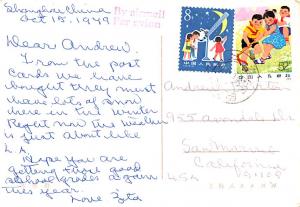 Shanghai China
Oct 15, 1979
By airmail
Par avion
Dear Andrew.
From the post
cards we have
bought they must
have lots of snow
here in the winter.
Right now the weather
is just about like
L.A.
Hope you are
getting those good
school grades again
this year.
Love
8
中国人民邮政
52
中国人民邮政
Andrew
San Marino
California
91108
USA